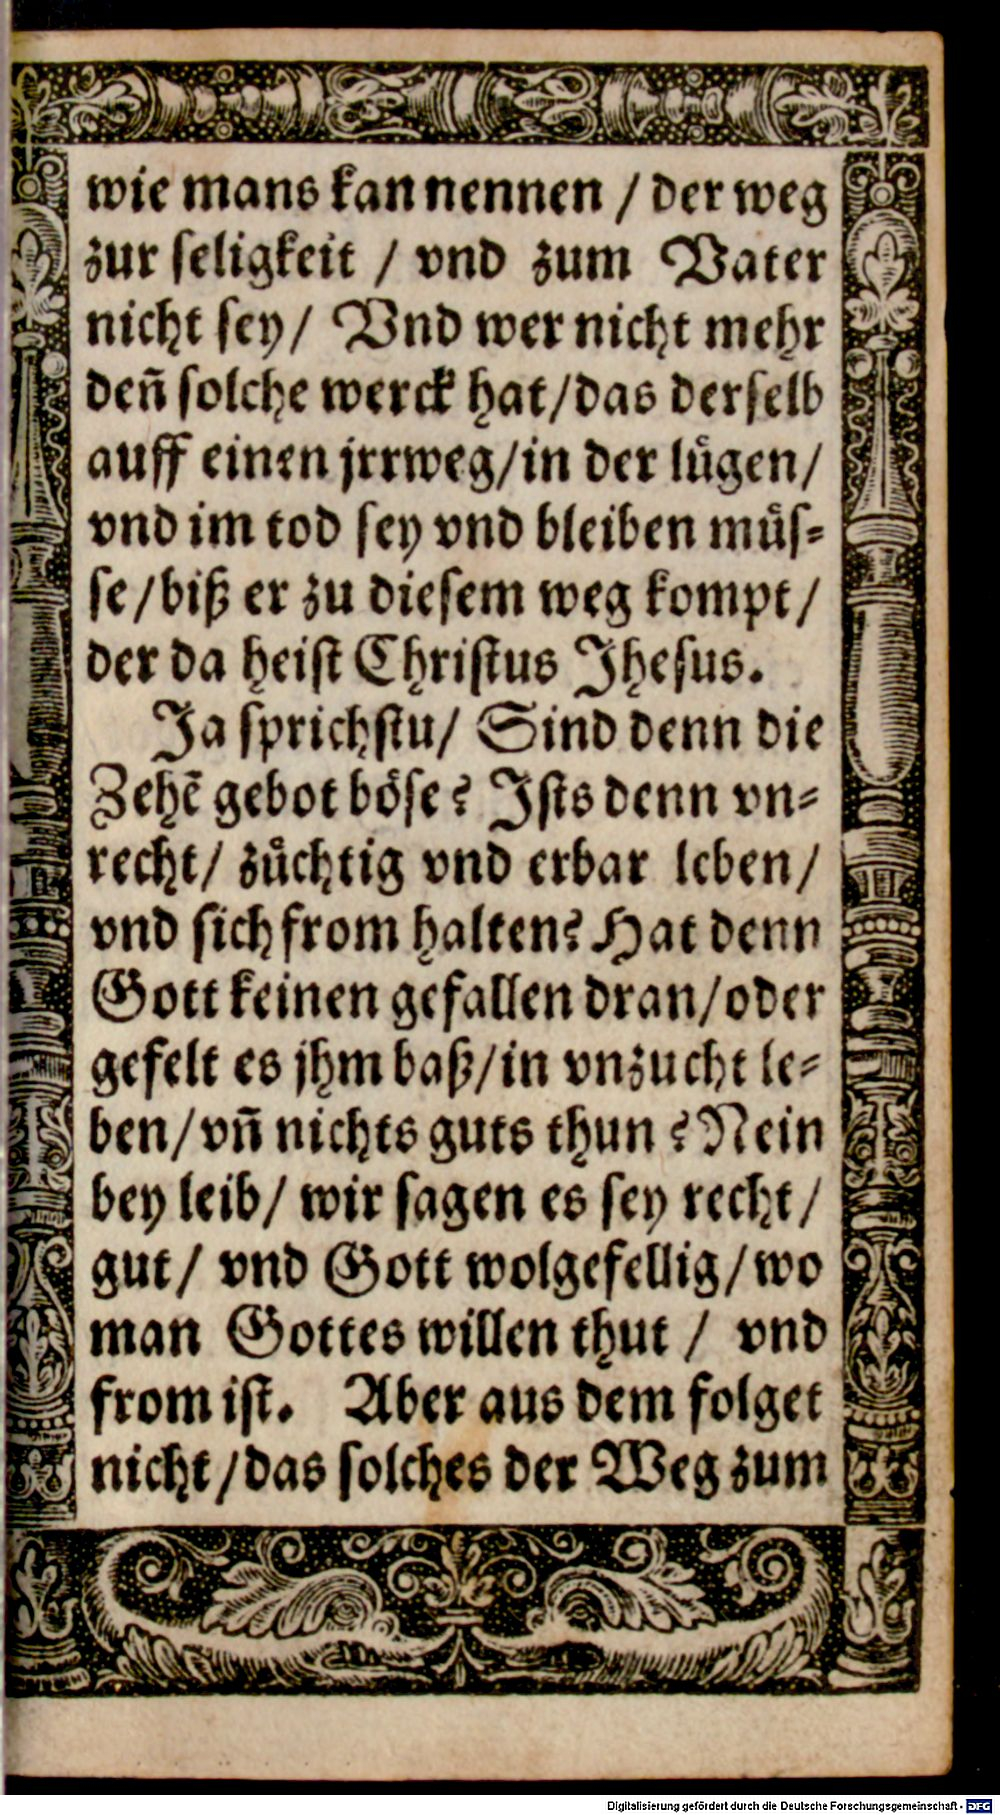 wie mans kan nennen / der weg
zur seligkeit / vnd zum Vater
nicht sey / Vnd wer nicht mehr
deñ solche werck hat / das derselb
auff einen jrrweg / in der luͤgen /
vnd im tod sey vnd bleiben muͤs⸗
se / biß er zu diesem weg kompt /
der da heist Christus Jhesus.
Ja sprichstu / Sind denn die
Zehē gebot boͤse? Ists denn vn⸗
recht / zuͤchtig vnd erbar leben /
vnd sich from halten? Hat denn
Gott keinen gefallen dran / oder
gefelt es jhm baß / in vnzucht le⸗
ben / vñ nichts guts thun? Nein
bey leib / wir sagen es sey recht /
gut / vnd Gott wolgefellig / wo
man Gottes willen thut / vnd
from ist. Aber aus dem folget
nicht / das solches der Weg zum
Digitalisierung gefördert durch die Deutsche Forschungsgemeinschaft - DFG